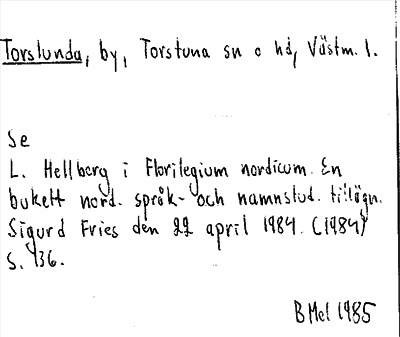 Torslunda, by, Torstuna sn o hd, Västm. l.
Se
L. Hellberg i Florilegium nordicum. En
bukett nord. språk- och namnstud. tillägn.
Sigurd Fries den 22 april 1984. (1984)
S. 136.
BMel 1985